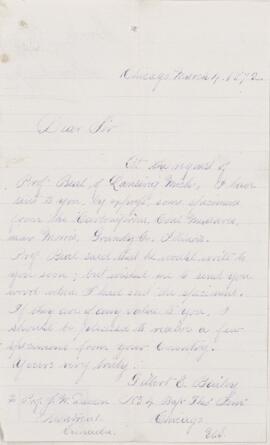 Chicago, March 4, 1872.
Dear Sir
At the request of
Prof. Beal, of Lansing Mich., I have
sent to you, by express, some specimens
from the Carboniferous, Coal Measures,
near Morris, Grundy Co. Illinois.
Prof. Beal said that he would write to
you soon; but wished me to send you
word when I had sent the specimens.
If they are of any value to you, I
should be pleased to receive a few
specimens from your Country.
Yours very truly
Gilbert E. Bailey
To Prof. J. W. Dawson No 4 Bap. Theo. Sem
Montreal Chicago
Canada. Ill.